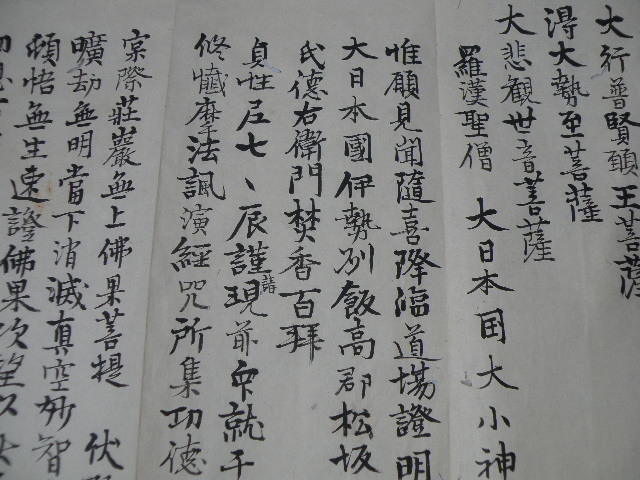 大行普賢願王菩薩
得大勢至菩薩
大悲観世音菩薩
羅漢聖僧　大日本国大小神
惟願見聞隨喜降臨道場證明
大日本國伊勢刕飯高郡松坂
氏德右衛門焚香百拜
貞性尼七〻辰謹請現前衆就于
修懺摩法諷演經咒所集功德
寀際莊嚴無上佛果菩提　伏
曠劫無明當下消滅真空妙智
頓悟無生速證佛果次望以